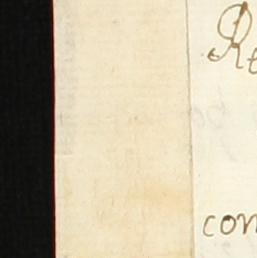 Re
con